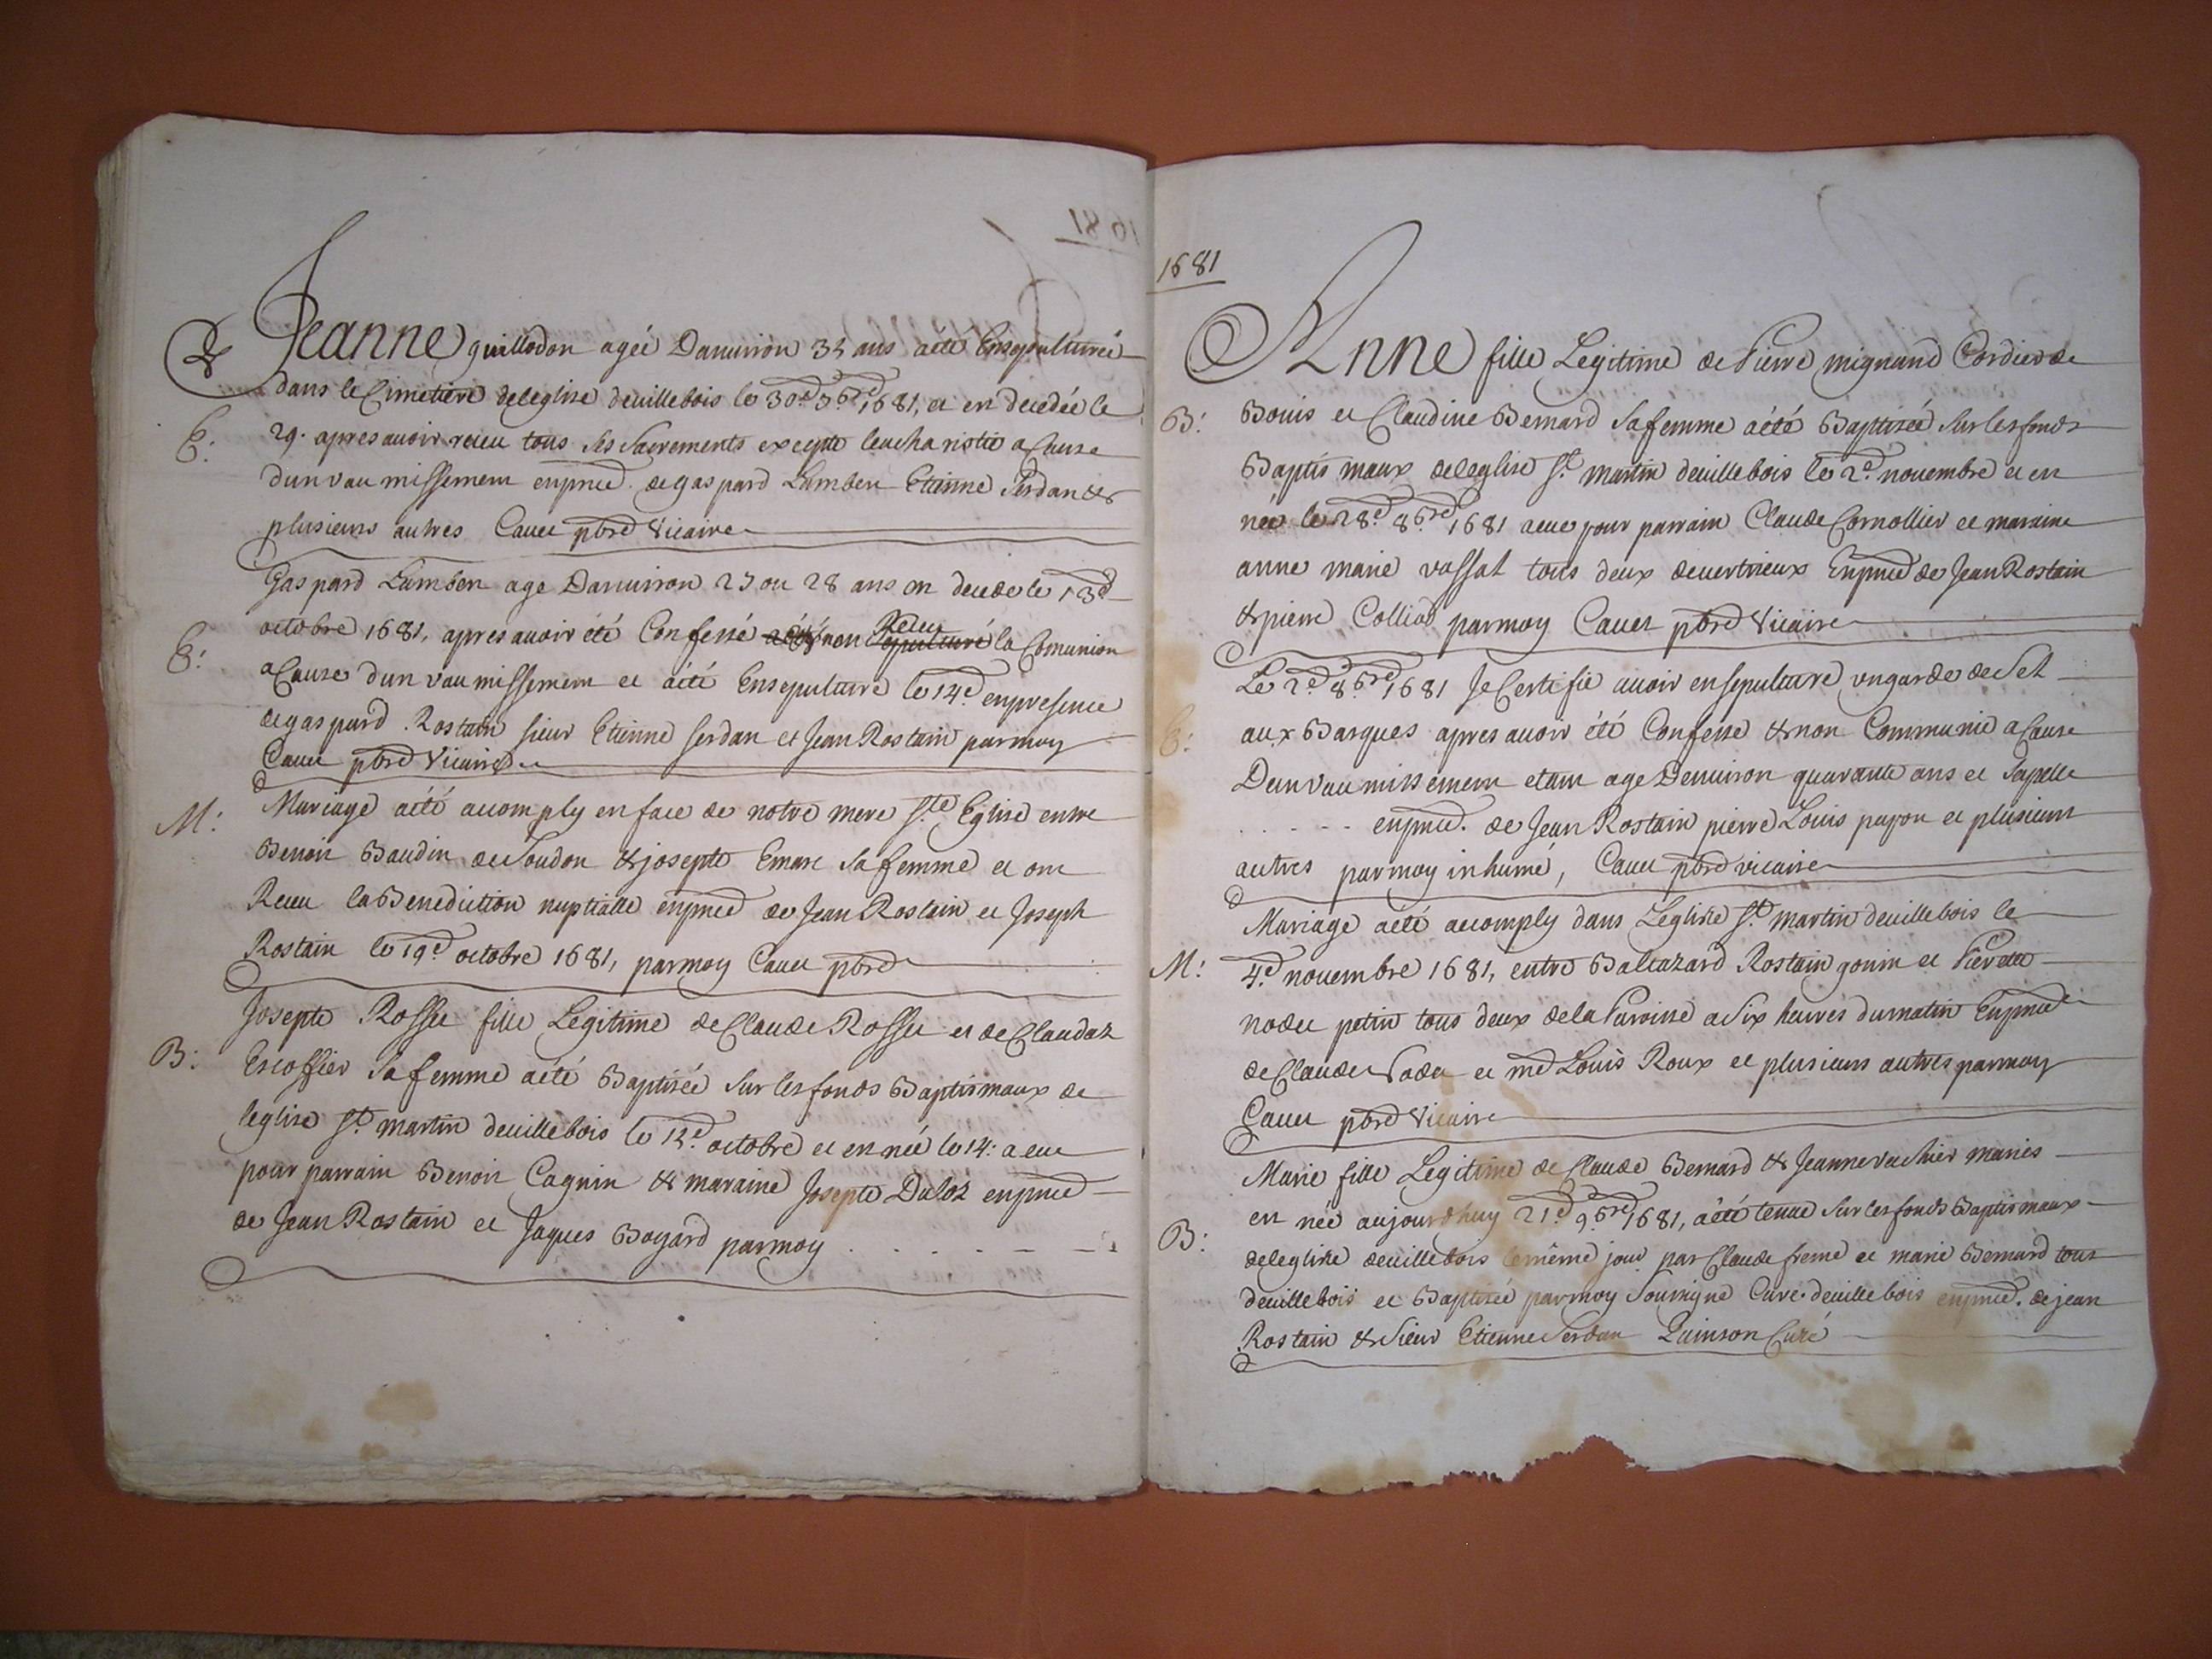 Jeanne guillodon agée Danuiron 35 ans aété Ensepulturée
dans le Cimetiere deleglise deuillebois le 30e 1681, et en decedée le
E:
29. apres auoir receu tous ses Sacrements excepte leucharistie a Cause
dun vaumissement enpnce. de gaspard Lambert Etienne Serdan &
plusieurs autres Cauet pbre Vicaire
Gaspard Lambert age Danuiron 27 ou 28 ans en decede le 13e
E:
octobre 1681, apres auoir été Confessé & non Receu la Comunion
a Cause dun vaumissement et aété Ensepulturé le 14e enpresence
de gaspard Rostain sieur Etienne serdan et Jean Rostain parmoy
Cauet pbre Vicaire
M:
Mariage aété acomply en face de notre mere Ste Eglise entre
Benoit Baudin de Soudon & josepte Emar sa femme et ont
Receu la Benediction nuptialle enpnce de Jean Rostain et Joseph
Rostain le 19e octobre 1681, parmoy Cauet pbre
Josepte Rosset fille Legitime de Claude Rosset et de Claudaz
B:
Escoffier sa femme aété Baptisée sur les fonds Baptismaux de
leglise St martin deuillebois le 15e octobre et en née le 14: a eue
pour parrain Benoit Cagnin & maraine Josepte Duloz enpnce
de Jean Rostain et Jaques Bayard parmoy . . . . .
1681
Anne fille Legitime de Pierre mignand Cordier de
B:
Bouis et Claudine Bernard sa femme aété Baptisée sur les fonds
Baptismaux deleglise St martin deuillebois le 2e nouembre et en
née le 28e 8bre 1681 a eue pour parrain Claude Cornollier et maraine
anne marie vassat tous deux deuertrieux Enpnce de Jean Rostain
& pierre Colliod parmoy Cauet pbre Vicaire
Le 2e 8bre 1681 Je Certifie auoir ensepulturé un garde de Sel
E:
aux Barques apres auoir été Confessé & non Communié a Cause
Dun vaumissement etant age Denuiron quarante ans et sapelle
. . . . . enpnce. de Jean Rostain pierre Louis payon et plusieurs
autres parmoy inhumé, Cauet pbre vicaire
Mariage aété acomply dans Leglise St martin deuillebois le
M:
4e nouembre 1681, entre Baltazard Rostain gonin et Pierette
nodet petin tous deux de la Paroisse a Six heures du matin Enpnce
de Claude Nodet et me Louis Roux et plusieurs autres parmoy
Cauet pbre Vicaire
Marie fille Legitime de Claude Bernard & Jeanne vachier mariés
en née aujourdhuy 21e 9bre 1681, aété tenue sur les fonds Baptismaux
B:
deleglise deuillebois le même jour par Claude freme et marie Bernard tous
deuillebois et Baptisée parmoy Soussigne Curé deuillebois enpnce. de jean
Rostain & Sieur Etienne Serdan Quinson Curé